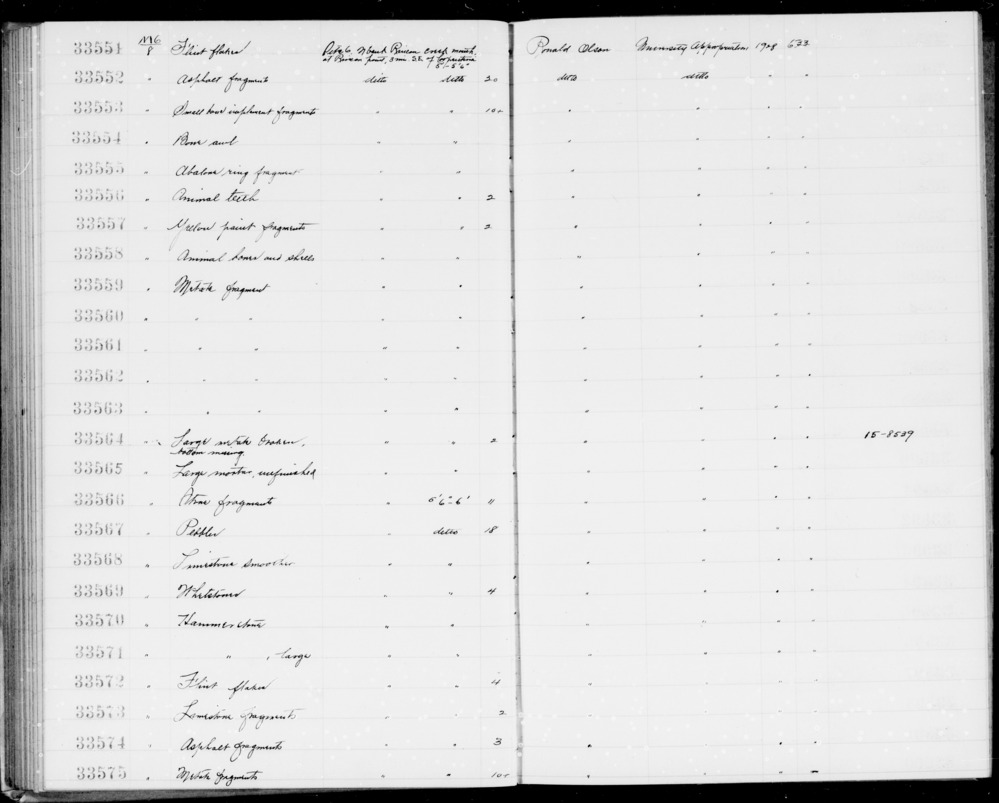 33551 M6/8 Flint flakes Site 6, N bank Rincon creek mouth, Ronald Olson University Appropriation 1928 633
at Rincon point, 3 mi. S.E. of Carpinteria
5'-5'6"
33552 " Asphalt fragments ditto ditto 20 ditto ditto " "
33553 " Small bone implement fragments " " 10+ " " " "
33554 " Bone awl " " " " " "
33555 " Abalone ring fragment " " " " " "
33556 " Animal teeth " " 2 " " " "
33557 " Yellow paint fragments " " 2 " " " "
33558 " Animal bones and shells " " " " " "
33559 " Metate fragment " " " " " "
33560 " " " " " " " " "
33561 " " " " " " " " "
33562 " " " " " " " " "
33563 " " " " " " " " "
33564 " Large metate broken, " " 2 " " " " 15-8529
bottom missing
33565 " Large mortar, unfinished " " " " " "
33566 " Stone fragments " 5'6"-6' 11 " " " "
33567 " Pebbles " ditto 18 " " " "
33568 " Limestone smoother " " " " " "
33569 " Whetstones " " 4 " " " "
33570 " Hammerstone " " " " " "
33571 " " , large " " " " " "
33572 " Flint flakes " " 4 " " " "
33573 " Limestone fragments " " 2 " " " "
33574 " Asphalt fragments " " 3 " " " "
33575 " Metate fragments " " 10+ " " " "